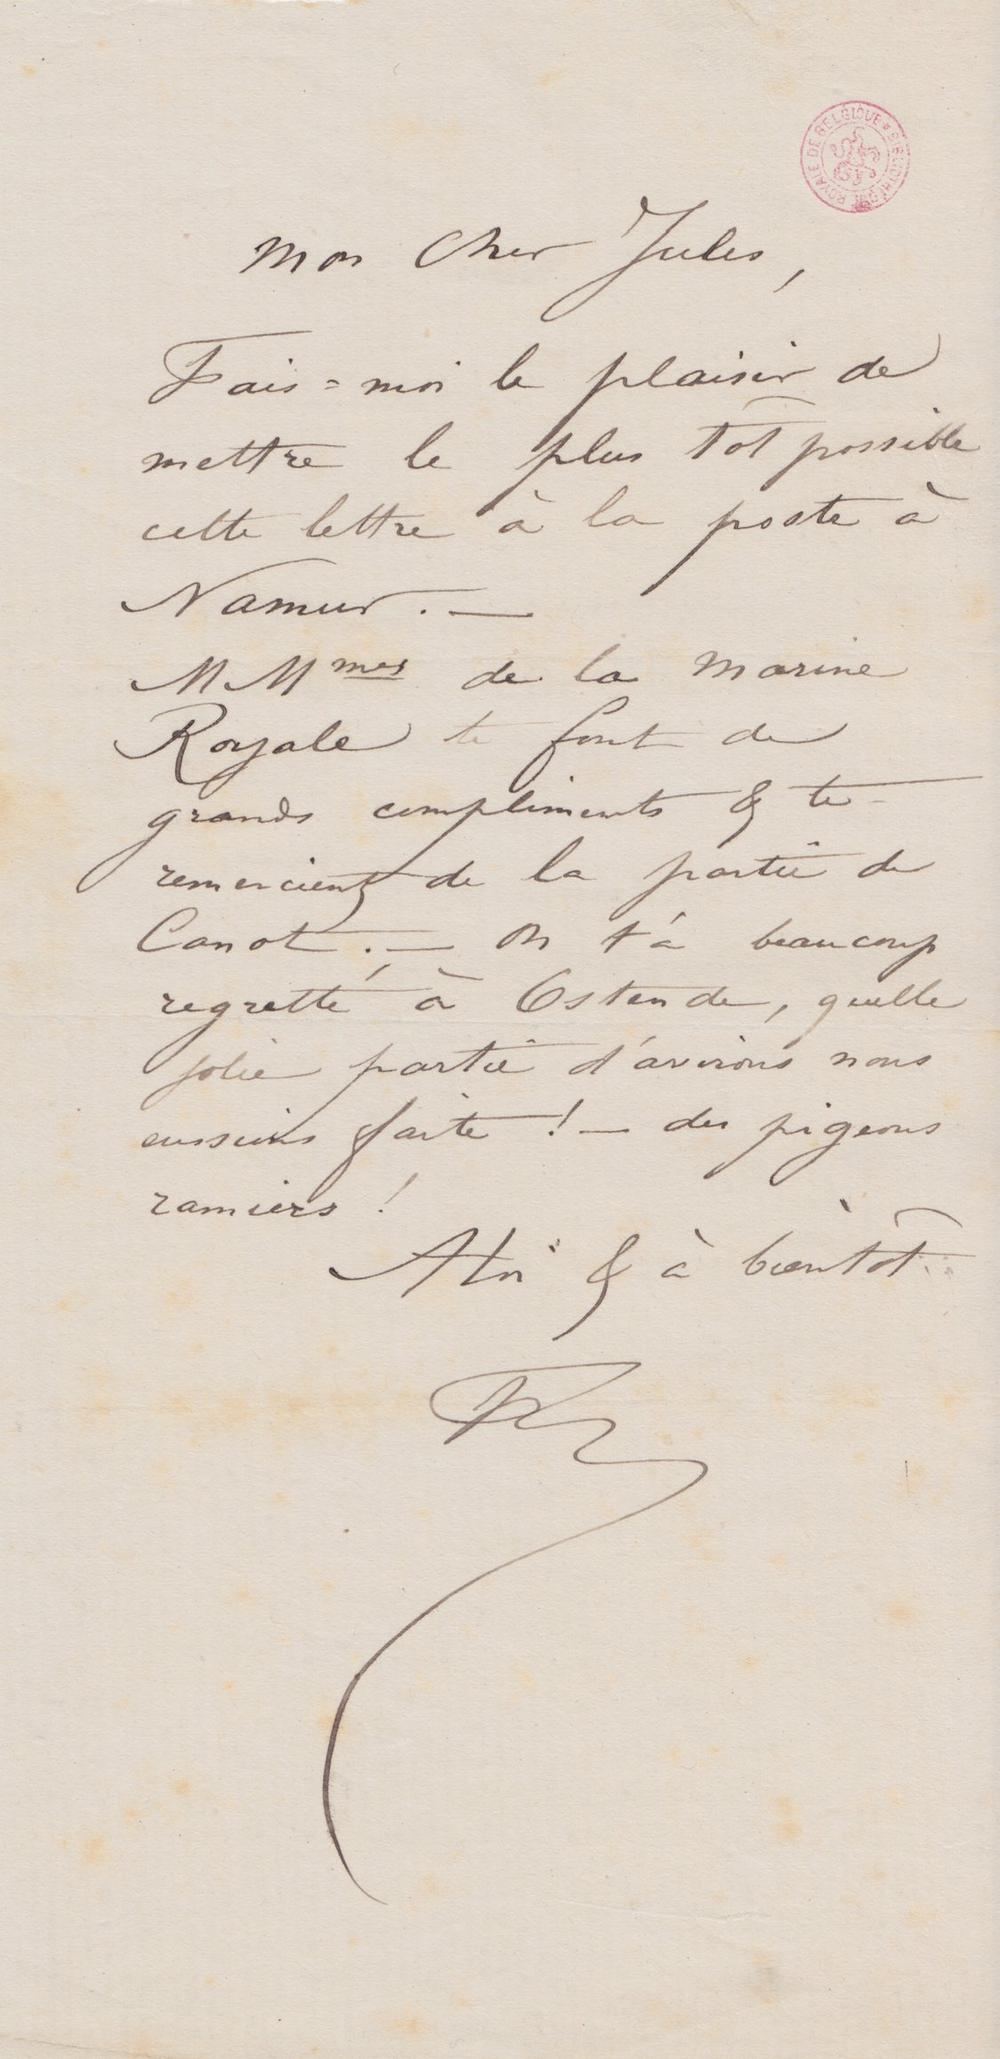 BIBLIOTHÈQUE ROYALE DE BELGIQUE
Mon Cher Jules,
Fais=moi le plaisir de
mettre le plus tôt possible
cette lettre à la poste à
Namur. —
MMmes de la Marine
Royale te font de
grands compliments & te
remercient de la partie de
Canot. — On t'a beaucoup
regretté à Ostende, quelle
jolie partie d'avirons nous
eussions faite ! — des pigeons
ramiers !
A toi & à bientôt